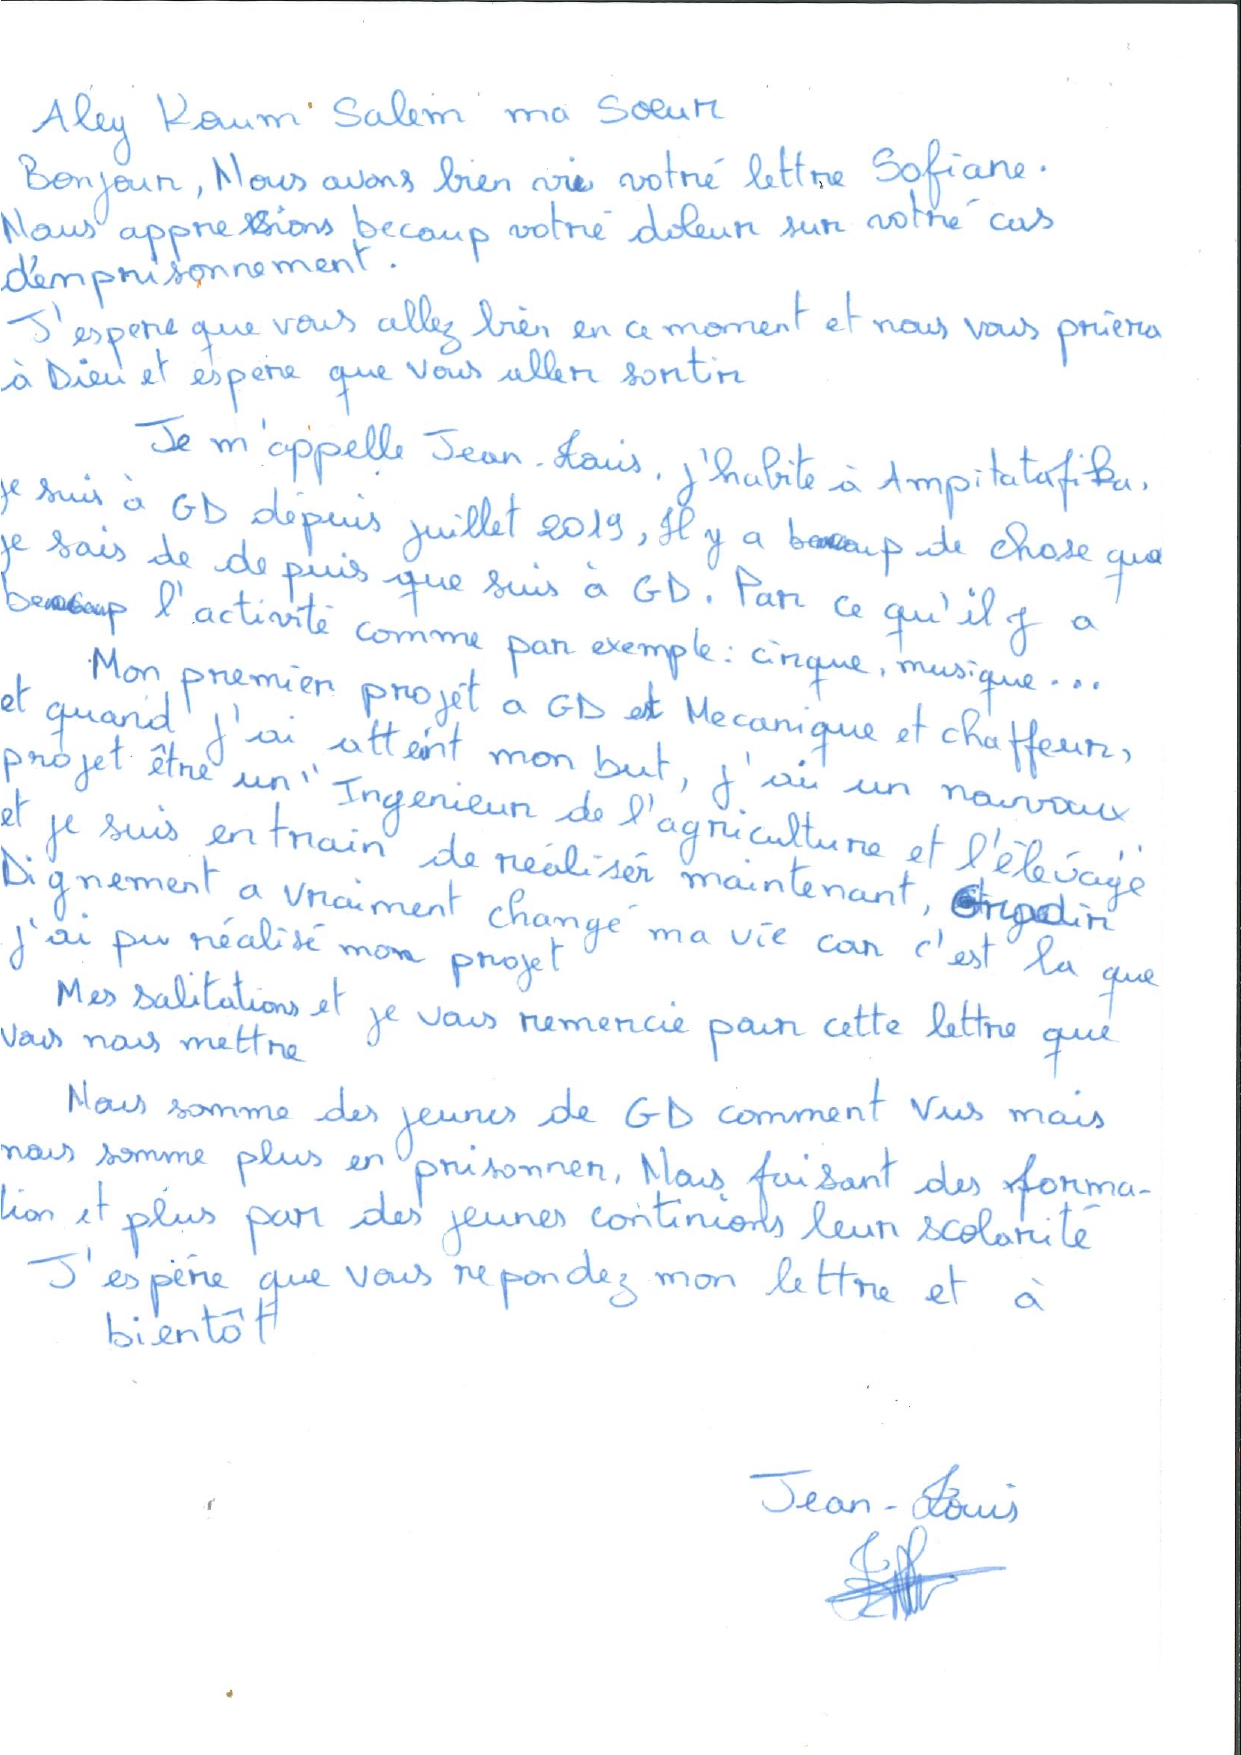 Aley Koum Salem ma Soeur
Bonjour, Nous avons bien vie votre lettre Sofiane.
Nous appressions becoup votre doleur sur votre cas
d'emprisonnement.
J'espere que vous allez bien en ce moment et nous vous priera
à Dieu et espere que vous aller sortir
Je m'appelle Jean-Louis, j'habite à Ampitatafika,
je suis à GD depuis juillet 2019, Il y a beacoup de chose que
je sais de depuis que suis à GD. Par ce qu'il y a
beacoup l'activité comme par exemple : cirque, musique...
Mon premier projet a GD est Mecanique et chaffeur,
et quand j'ai atteint mon but, j'ai un nouvoux
projet être un "Ingenieur de l'agriculture et l'élevage"
et je suis entrain de réaliser maintenant, Grandir
Dignement a vraiment changé ma vie car c'est la que
j'ai pu réalisé mon projet
Mes salitations et je vous remercie pour cette lettre que
vous nous mettre
Nous somme des jeunes de GD comment vus mais
nous somme plus en prisonner, Nous faisant des forma-
tion et plus par des jeunes continions leur scolarité
J'espère que vous repondez mon lettre et à
bientôt
Jean-Louis